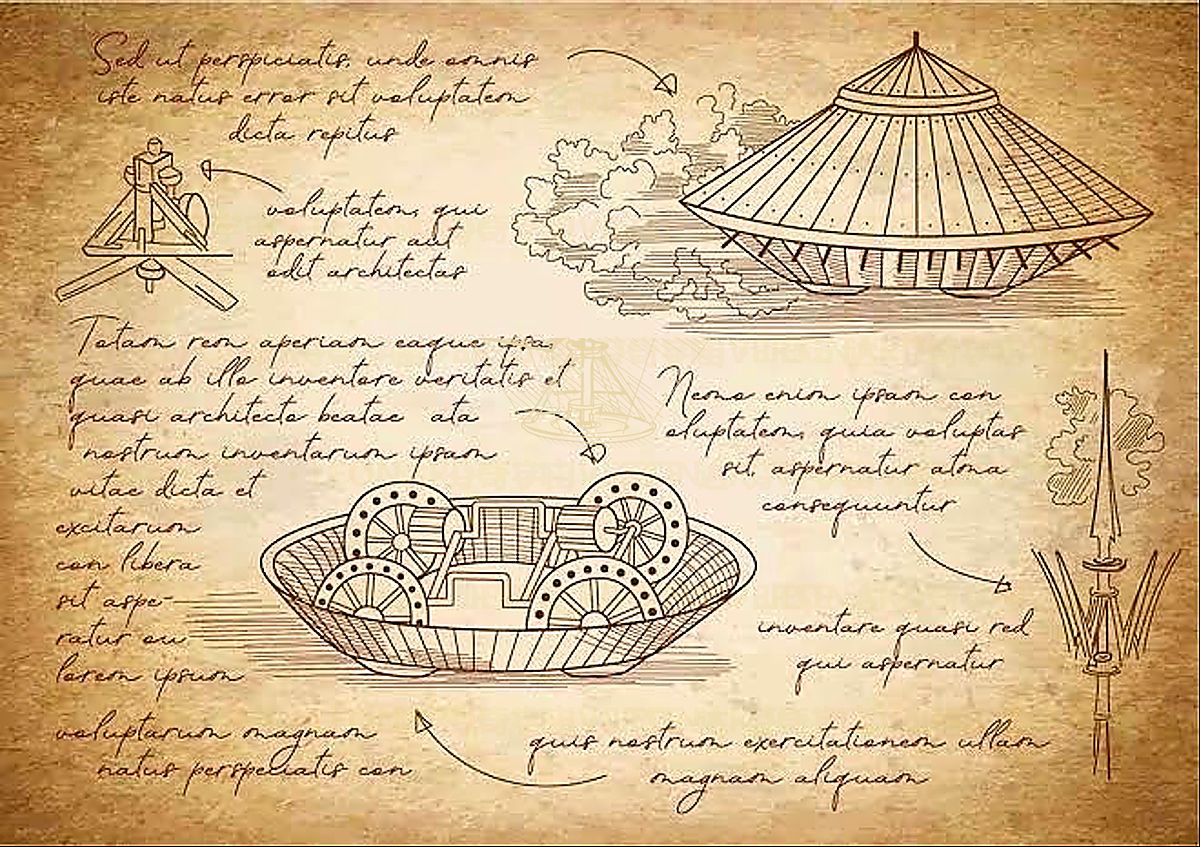 Sed ut perspiciatis, unde omnis
iste natus error sit voluptatem
dicta repitus
voluptatem, qui
aspernatur aut
odit architectas
Totam rem aperiam eaque ipsa,
quae ab illo inventore veritatis et
quasi architecto beatae ata
nostrum inventarum ipsam
vitae dicta et
excitarum
con libera
sit aspe-
ratur ou
lorem ipsum
Nemo enim ipsam con
oluptatem, quia voluptas
sit, aspernatur atma
consequuntur
inventare quasi red
qui aspernatur
voluptarum magnam
natus perspeciatis con
quis nostrum exercitationem ullam
magnam aliquam